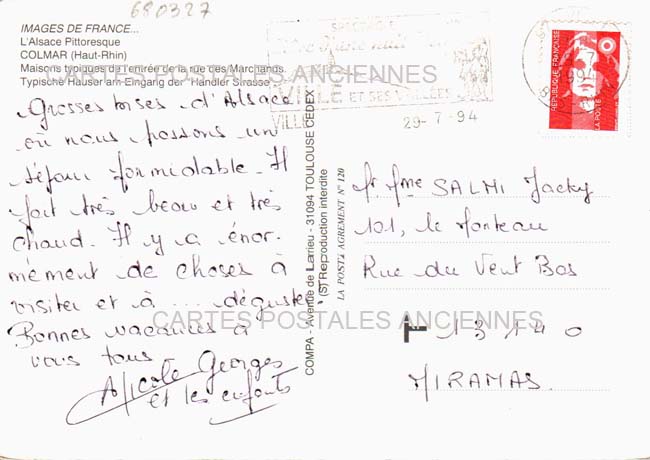 680327
IMAGES DE FRANCE...
L'Alsace Pittoresque
COLMAR (Haut-Rhin)
Maisons typiques de l'entrée de la rue des Marchands
Typische Häuser am Eingang der "Händler Strasse"
Grosses bises d'Alsace
où nous passons un
séjour formidable. Il
fait très beau et très
chaud. Il y a énor-
mément de choses à
visiter et à ... déguster
Bonnes vacances à
vous tous
Nicole Georges
et les enfants
COMPA - Avenue de Larrieu - 31094 TOULOUSE CEDEX
(S) Reproduction interdite
LA POSTE AGREMENT N° 120
SPECTACLE
VILLE ET SES VALLÉES
VILLE
29-7-94
REPUBLIQUE FRANÇAISE
LA POSTE
Mr Mme SALMI Jacky
101, le Monteau
Rue du Vent Bas
13140
MIRAMAS
CARTES POSTALES ANCIENNES
CARTES POSTALES ANCIENNES